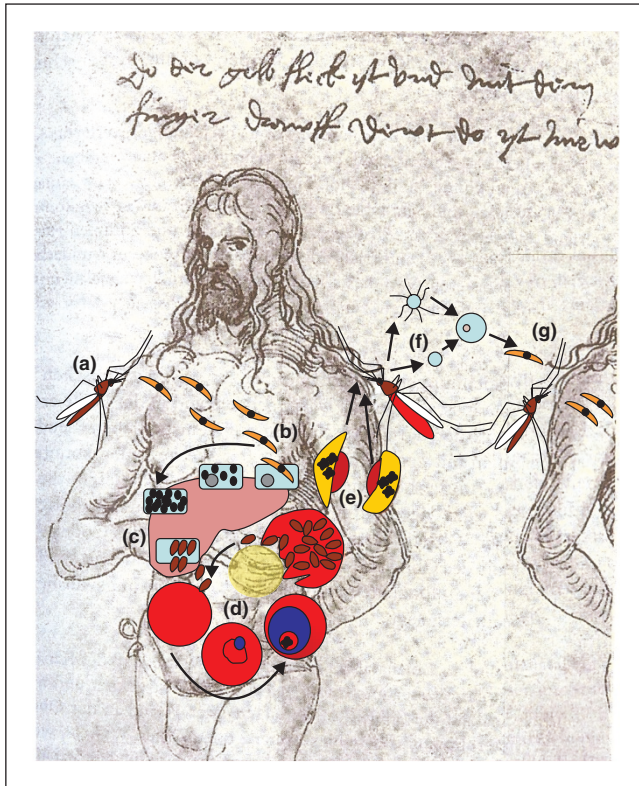 Do der gelb fleck yst vnd mit dem
finger drawff dewt do yst mir w
(a)
(f)
(g)
(b)
(e)
(c)
(d)